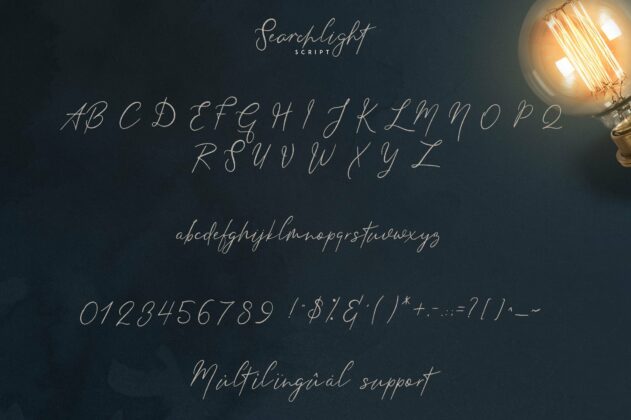 Searchlight
SCRIPT
A B C D E F G H I J K L M N O P Q
R S U V W X Y Z
abcdefghijklmnopqrstuvwxyz
0123456789 !"$%&'()*+,-.:;=?[]^_~
Múltilïngûâl support